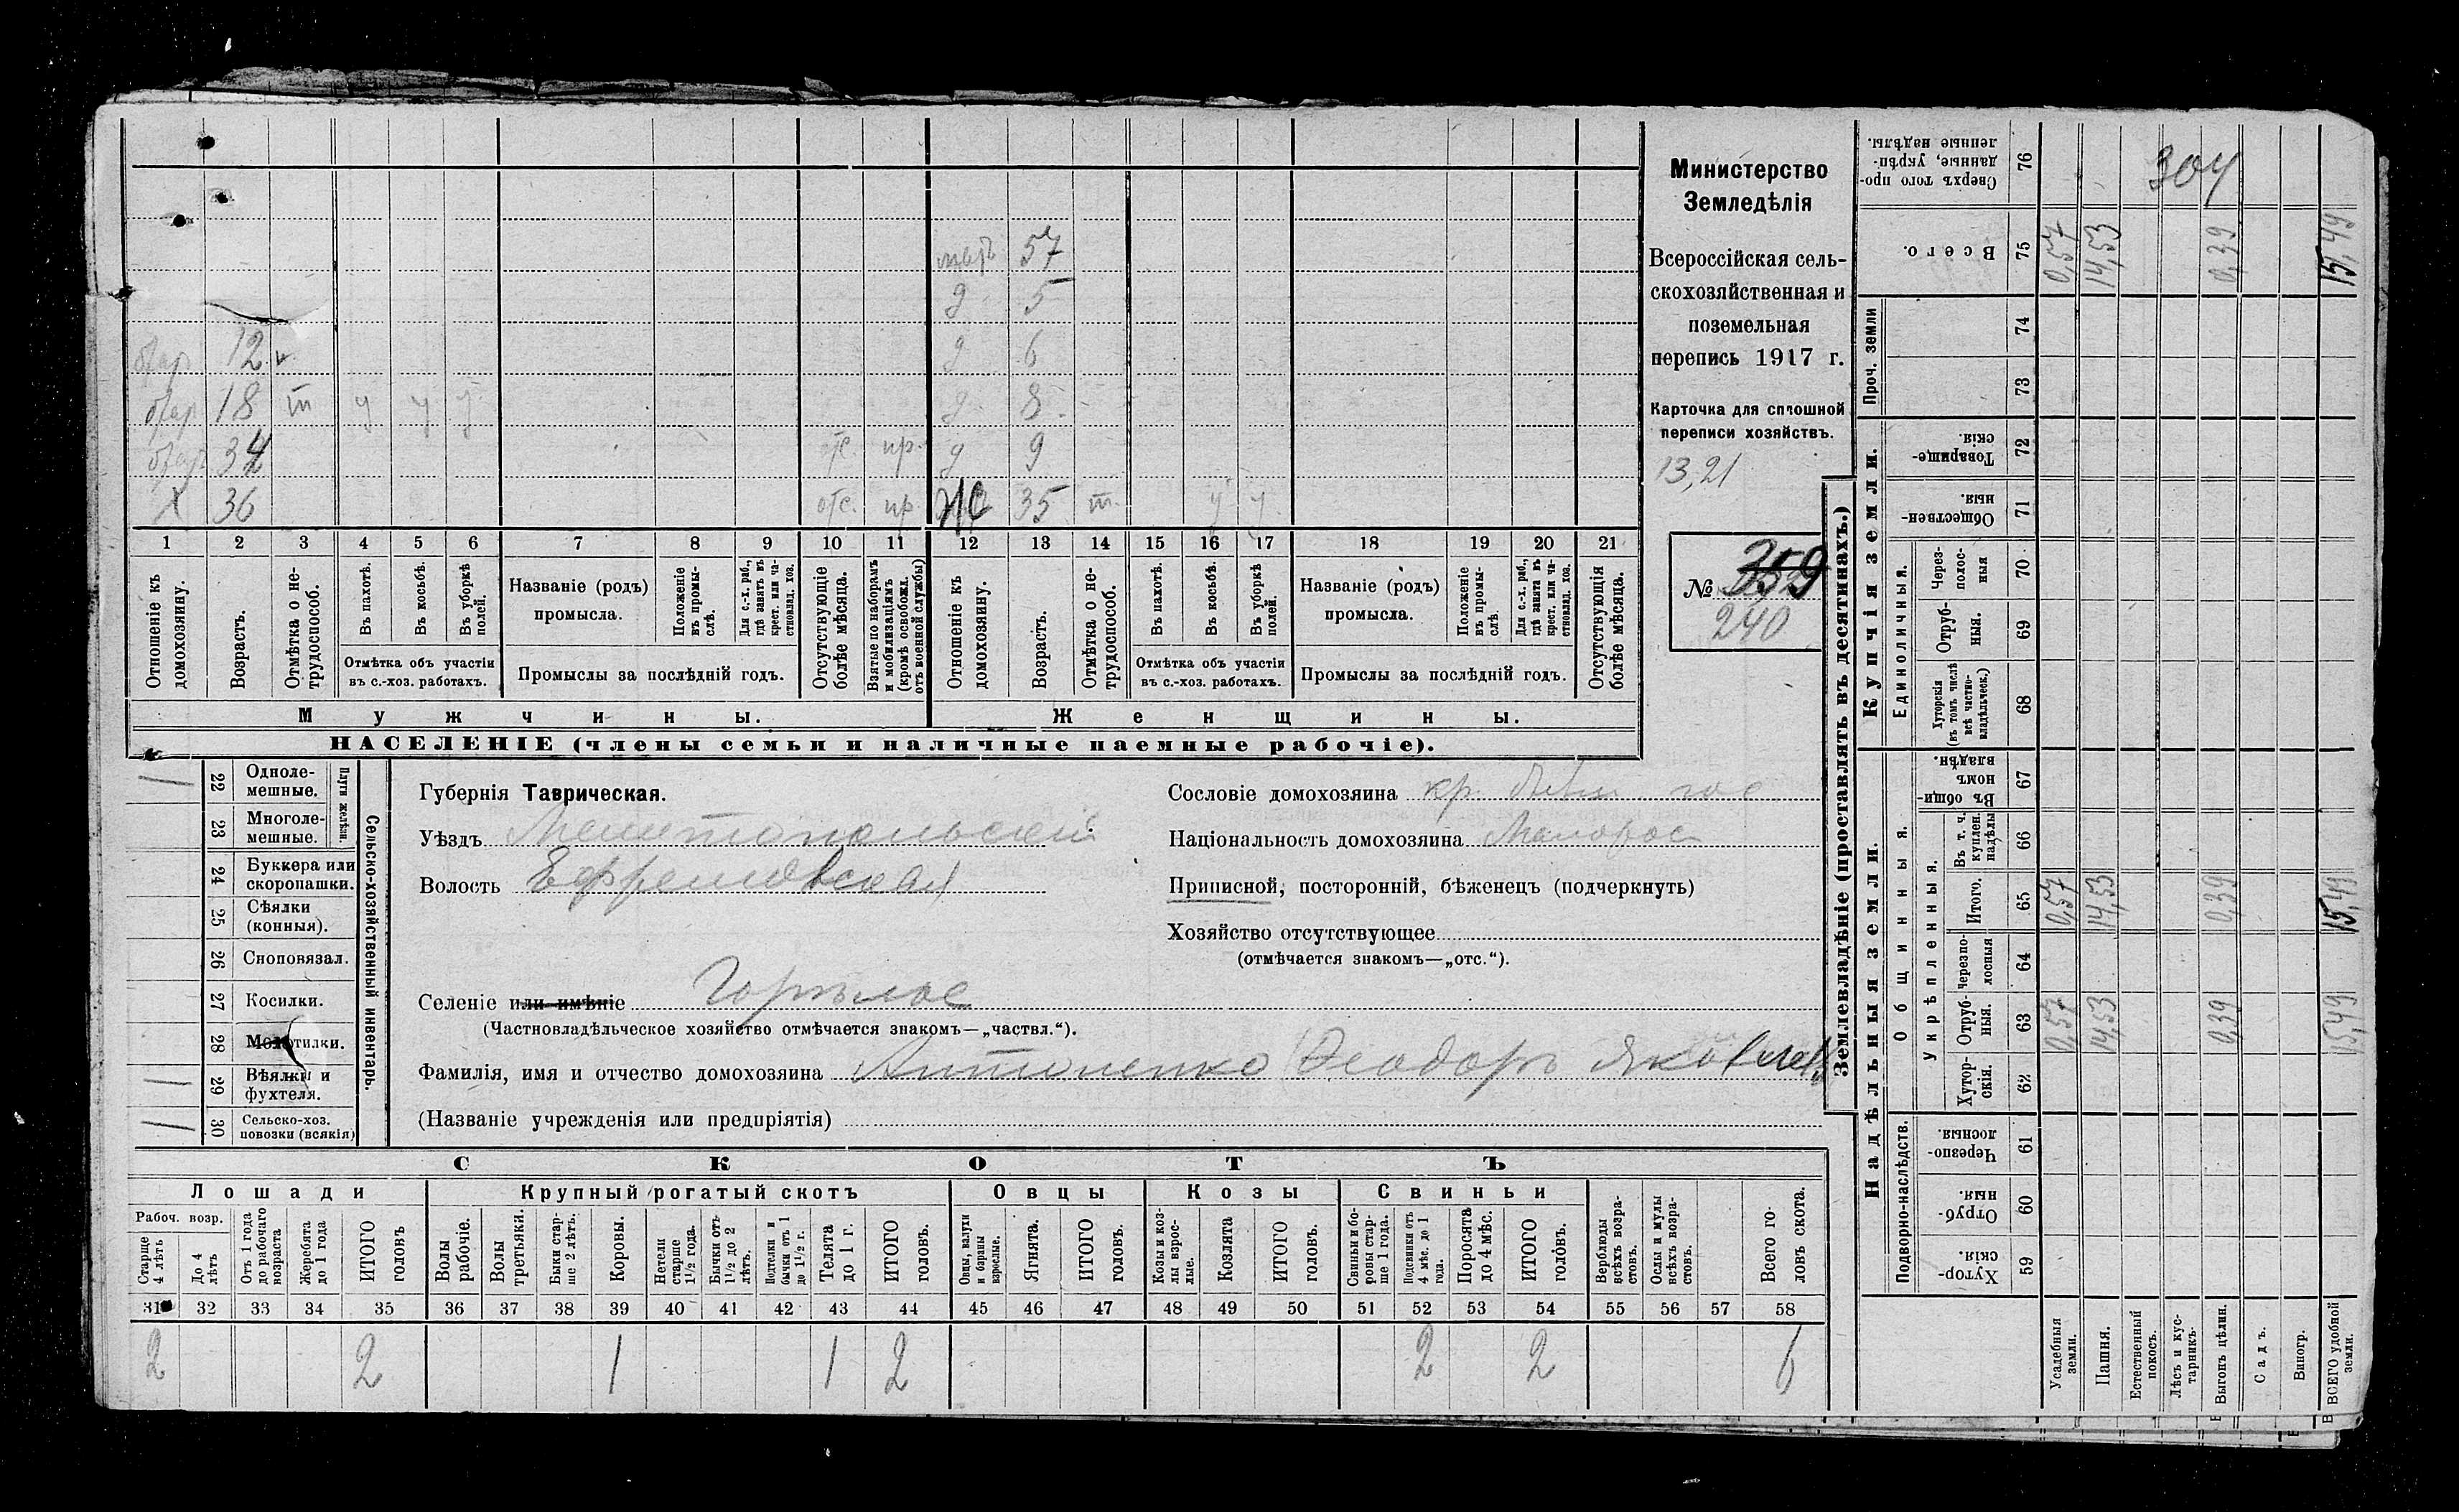 Министерство
Земледѣлія
Всероссійская сель-
скохозяйственная и
поземельная
перепись 1917 г.
Карточка для сплошной
переписи хозяйствъ.
13,21
№ 359
240
мать 57
д 5
брат 12 д 6
брат 18 т у у у д 8
брат 34 отс. пр. д 9
х 36 отс. пр. 35 т у у
1 2 3 4 5 6 7 8 9 10 11 12 13 14 15 16 17 18 19 20 21
Отношеніе къ домохозяину.
Возрастъ.
Отмѣтка о не-трудоспособ.
Въ пахотѣ.
Въ косьбѣ.
Въ уборкѣ полей.
Отмѣтка объ участіи въ с.-хоз. работахъ.
Названіе (родъ) промысла.
Положеніе въ промы-слѣ.
Для с.-х. раб., гдѣ занятъ въ крест. или ча-стновлад. хоз.
Промыслы за послѣдній годъ.
Отсутствующіе болѣе мѣсяца.
Взятые по наборамъ и мобилизаціямъ (кромѣ освобожд. отъ военной службы)
Отношеніе къ домохозяину.
Возрастъ.
Отмѣтка о не-трудоспособ.
Въ пахотѣ.
Въ косьбѣ.
Въ уборкѣ полей.
Отмѣтка объ участіи въ с.-хоз. работахъ.
Названіе (родъ) промысла.
Положеніе въ промы-слѣ.
Для с.-х. раб., гдѣ занятъ въ крест. или ча-стновлад. хоз.
Промыслы за послѣдній годъ.
Отсутствующія болѣе мѣсяца.
Мужчины. Женщины.
НАСЕЛЕНІЕ (члены семьи и наличные наемные рабочіе).
Сельско-хозяйственный инвентарь.
Плуги желѣзн.
22 Одноле-мешные.
23 Многоле-мешные.
24 Буккера или скоропашки.
25 Сѣялки (конныя).
26 Сноповязал.
27 Косилки.
28 Молотилки.
29 Вѣялки и фухтеля.
30 Сельско-хоз. повозки (всякія)
Губернія Таврическая.
Уѣздъ Мелитопольский
Волость Ефремовская
Селеніе или имѣніе
(Частновладѣльческое хозяйство отмѣчается знакомъ—„частвл.“).
Фамилія, имя и отчество домохозяина Антоненко Феодоръ Яковлев
(Названіе учрежденія или предпріятія)
Сословіе домохозяина кр.
Національность домохозяина Малорос
Приписной, посторонній, бѣженецъ (подчеркнуть)
Хозяйство отсутствующее
(отмѣчается знакомъ—„отс.“).
СКОТЪ
Лошади Крупный рогатый скотъ Овцы Козы Свиньи
Рабоч. возр.
Старше 4 лѣтъ
До 4 лѣтъ
Отъ 1 года до рабочаго возраста
Жеребята до 1 года
ИТОГО головъ
Волы рабочіе.
Волы третьяки.
Быки стар-ше 2 лѣтъ.
Коровы.
Нетели старше 1½ года.
Бычки отъ 1½ до 2 лѣтъ.
Подтелки и бычки отъ 1 до 1½ г.
Телята до 1 г.
ИТОГО головъ.
Овцы, валухи и бараны взрослые.
Ягнята.
ИТОГО головъ.
Козы и коз-лы взрос-лые.
Козлята
ИТОГО головъ.
Свиньи и бо-ровы стар-ше 1 года.
Подсвинки отъ 4 мѣс. до 1 года.
Поросята до 4 мѣс.
ИТОГО головъ.
Верблюды всѣхъ возра-стовъ.
Ослы и мулы всѣхъ возра-стовъ.
Всего го-ловъ скота.
31 32 33 34 35 36 37 38 39 40 41 42 43 44 45 46 47 48 49 50 51 52 53 54 55 56 57 58
2 2 1 1 2 2 2 6
Землевладѣніе (проставлять въ десятинахъ.)
Надѣльныя земли. Купчія земли.
Подворно-наслѣдств.
Общинныя.
Укрѣпленныя.
Единоличныя.
Проч. земли
Хутор-скія. 59
Отруб-ныя. 60
Черезпо-лосныя. 61
Хутор-скія. 62
Отруб-ныя. 63 0,57 14,53 0,39 15,49
Черезпо-лосныя 64
Итого. 65 0,57 14,53 0,39 15,49
Въ т. ч. куплен. надѣлы 66
Въ общи-номъ владѣн. 67
Хуторскія (въ томъ числѣ всѣ частно-владѣльческ.) 68
Отруб-ныя. 69
Через-полос-ныя 70
Обществен-ныя. 71
Товарище-скія. 72
73
74
Всего. 75 0,57 14,53 0,39 15,49
Сверхъ того про-данные, укрѣп-ленные надѣлы. 76
304
Усадебныя земли.
Пашня.
Естественный покосъ.
Лѣсъ и кус-тарникъ.
Выгонъ цѣлин.
Садъ.
Виногр.
ВСЕГО удобной земли.